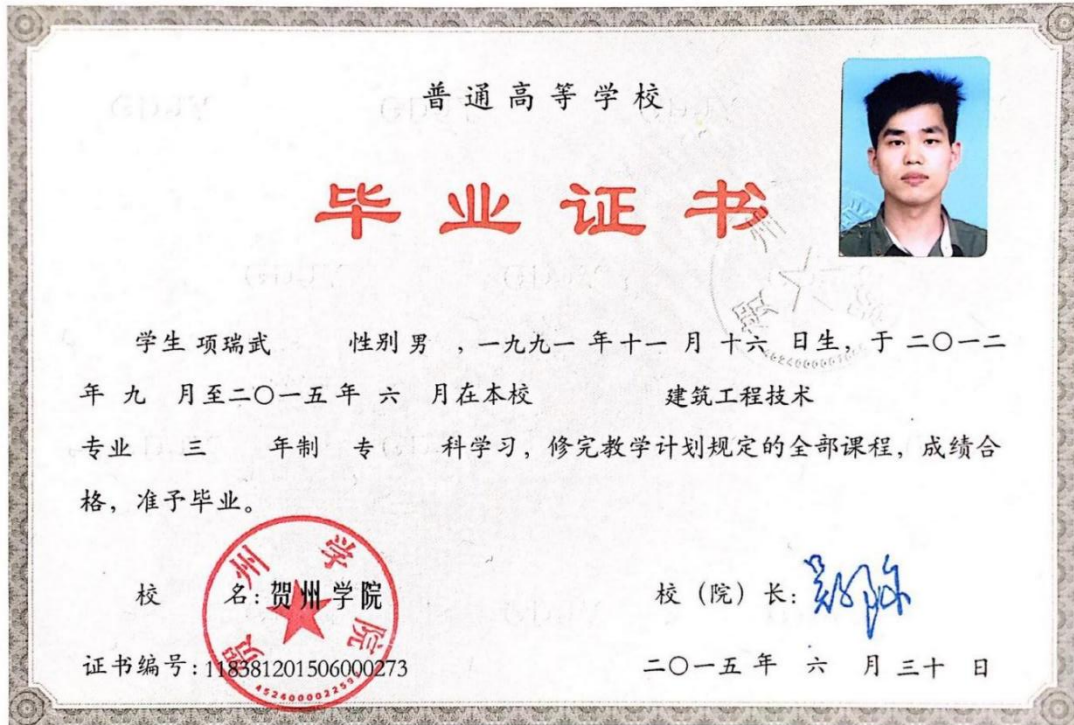 普通高等学校
毕业证书
学生 项瑞武 性别 男 ，一九九一 年 十一 月 十六 日生，于 二〇一二
年 九 月至二〇一五 年 六 月在本校 建筑工程技术
专业 三 年制 专 科学习，修完教学计划规定的全部课程，成绩合
格，准予毕业。
校 名：贺州学院
校（院）长：
贺州学院
证书编号：118381201506000273
二〇一五 年 六 月 三十 日